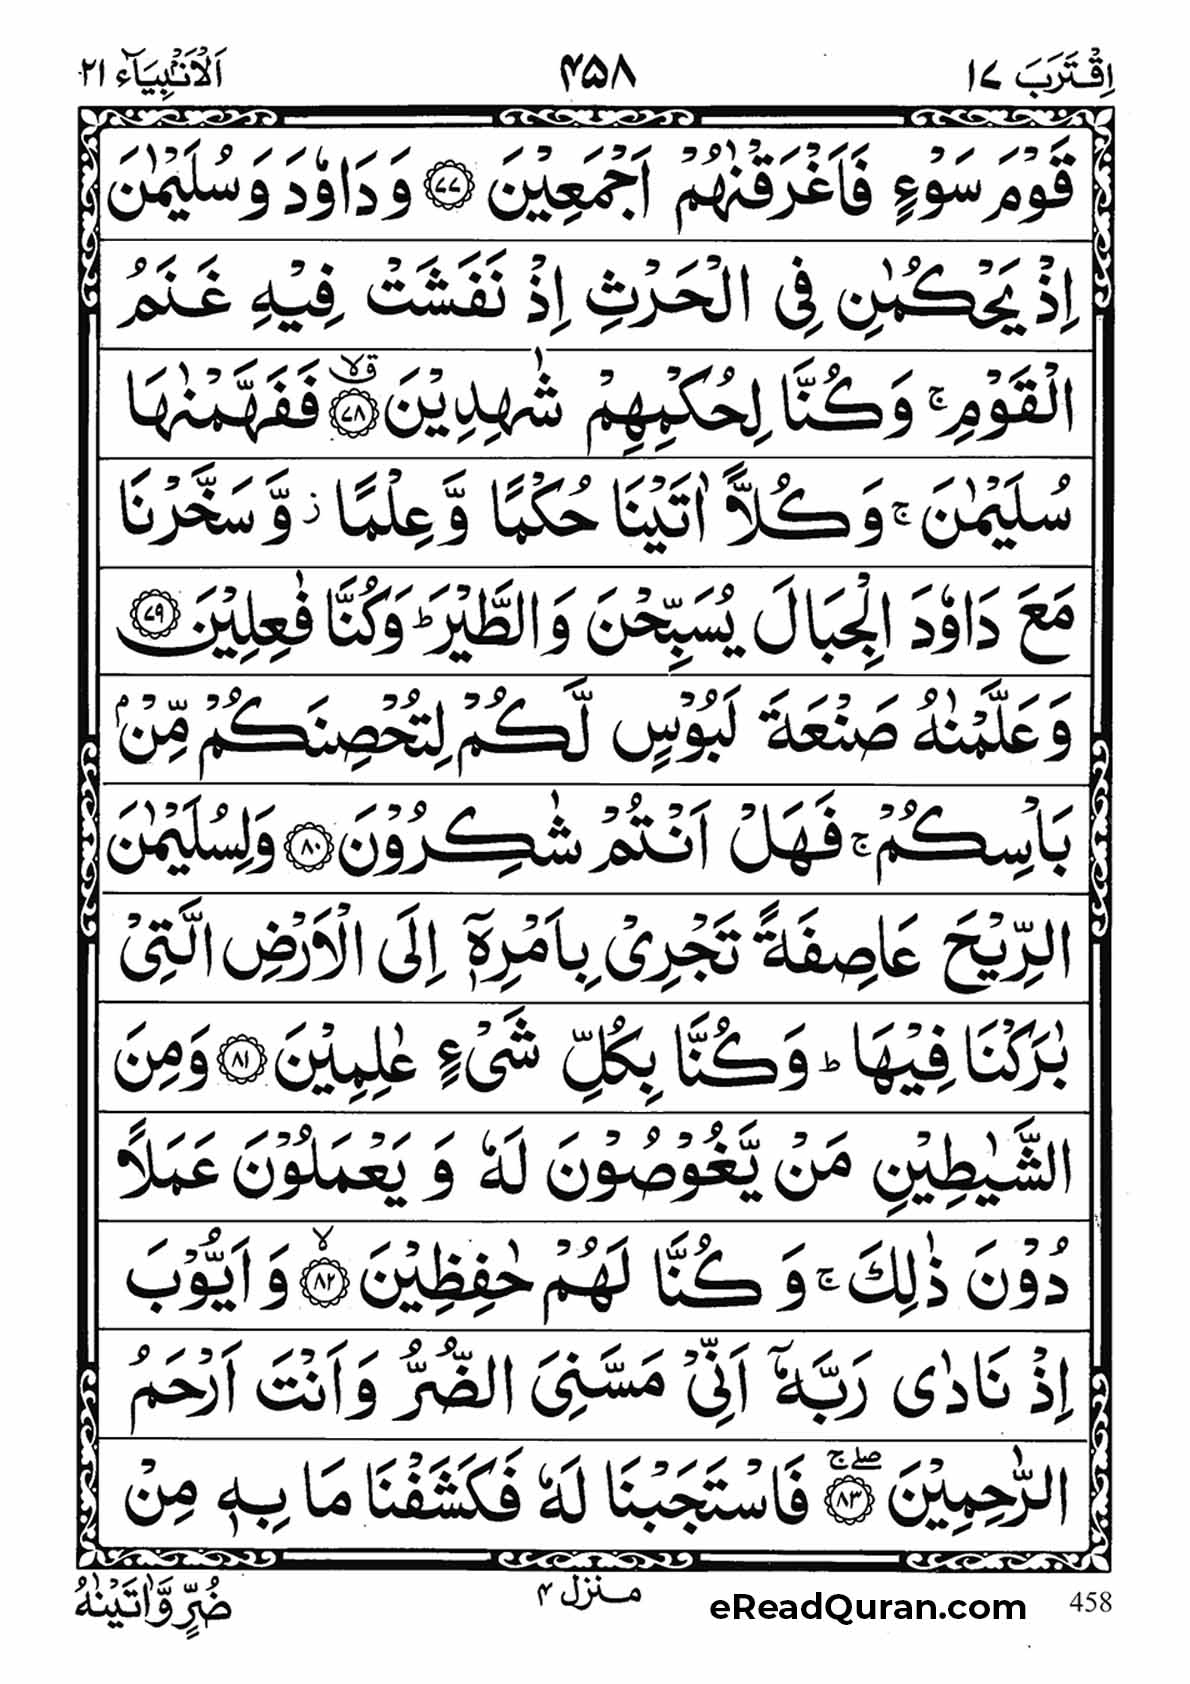 اِقْتَرَبَ ١٧
۴۵۸
اَلْاَنْۢبِيَآء ٢١
قَوْمَ سَوْءٍ فَاَغْرَقْنٰهُمْ اَجْمَعِيْنَ ﴿٧٧﴾ وَ دَاوٗدَ وَ سُلَيْمٰنَ
اِذْ يَحْكُمٰنِ فِى الْحَرْثِ اِذْ نَفَشَتْ فِيْهِ غَنَمُ
الْقَوْمِ ۚ وَ كُنَّا لِحُكْمِهِمْ شٰهِدِيْنَ ﴿٧٨﴾ ۙق فَفَهَّمْنٰهَا
سُلَيْمٰنَ ۚ وَ كُلًّا اٰتَيْنَا حُكْمًا وَّ عِلْمًا ز وَّ سَخَّرْنَا
مَعَ دَاوٗدَ الْجِبَالَ يُسَبِّحْنَ وَ الطَّيْرَ ؕ وَ كُنَّا فٰعِلِيْنَ ﴿٧٩﴾
وَ عَلَّمْنٰهُ صَنْعَةَ لَبُوْسٍ لَّكُمْ لِتُحْصِنَكُمْ مِّنْۢ
بَاْسِكُمْ ۚ فَهَلْ اَنْتُمْ شٰكِرُوْنَ ﴿٨٠﴾ وَ لِسُلَيْمٰنَ
الرِّيْحَ عَاصِفَةً تَجْرِىْ بِاَمْرِهٖۤ اِلَى الْاَرْضِ الَّتِىْ
بٰرَكْنَا فِيْهَا ؕ وَ كُنَّا بِكُلِّ شَىْءٍ عٰلِمِيْنَ ﴿٨١﴾ وَ مِنَ
الشَّيٰطِيْنِ مَنْ يَّغُوْصُوْنَ لَهٗ وَ يَعْمَلُوْنَ عَمَلًا
دُوْنَ ذٰلِكَ ۚ وَ كُنَّا لَهُمْ حٰفِظِيْنَ ﴿٨٢﴾ ۙ وَ اَيُّوْبَ
اِذْ نَادٰى رَبَّهٗۤ اَنِّىْ مَسَّنِىَ الضُّرُّ وَ اَنْتَ اَرْحَمُ
الرّٰحِمِيْنَ ﴿٨٣﴾ ۖۚ فَاسْتَجَبْنَا لَهٗ فَكَشَفْنَا مَا بِهٖ مِنْ
ضُرٍّ وَّ اٰتَيْنٰهُ
منزل ۴
eReadQuran.com
458